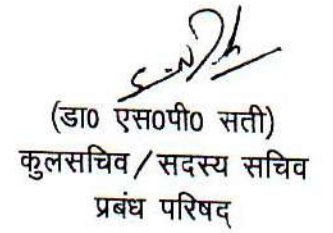 (डा0 एस0पी0 सती)
कुलसचिव / सदस्य सचिव
प्रबंध परिषद्